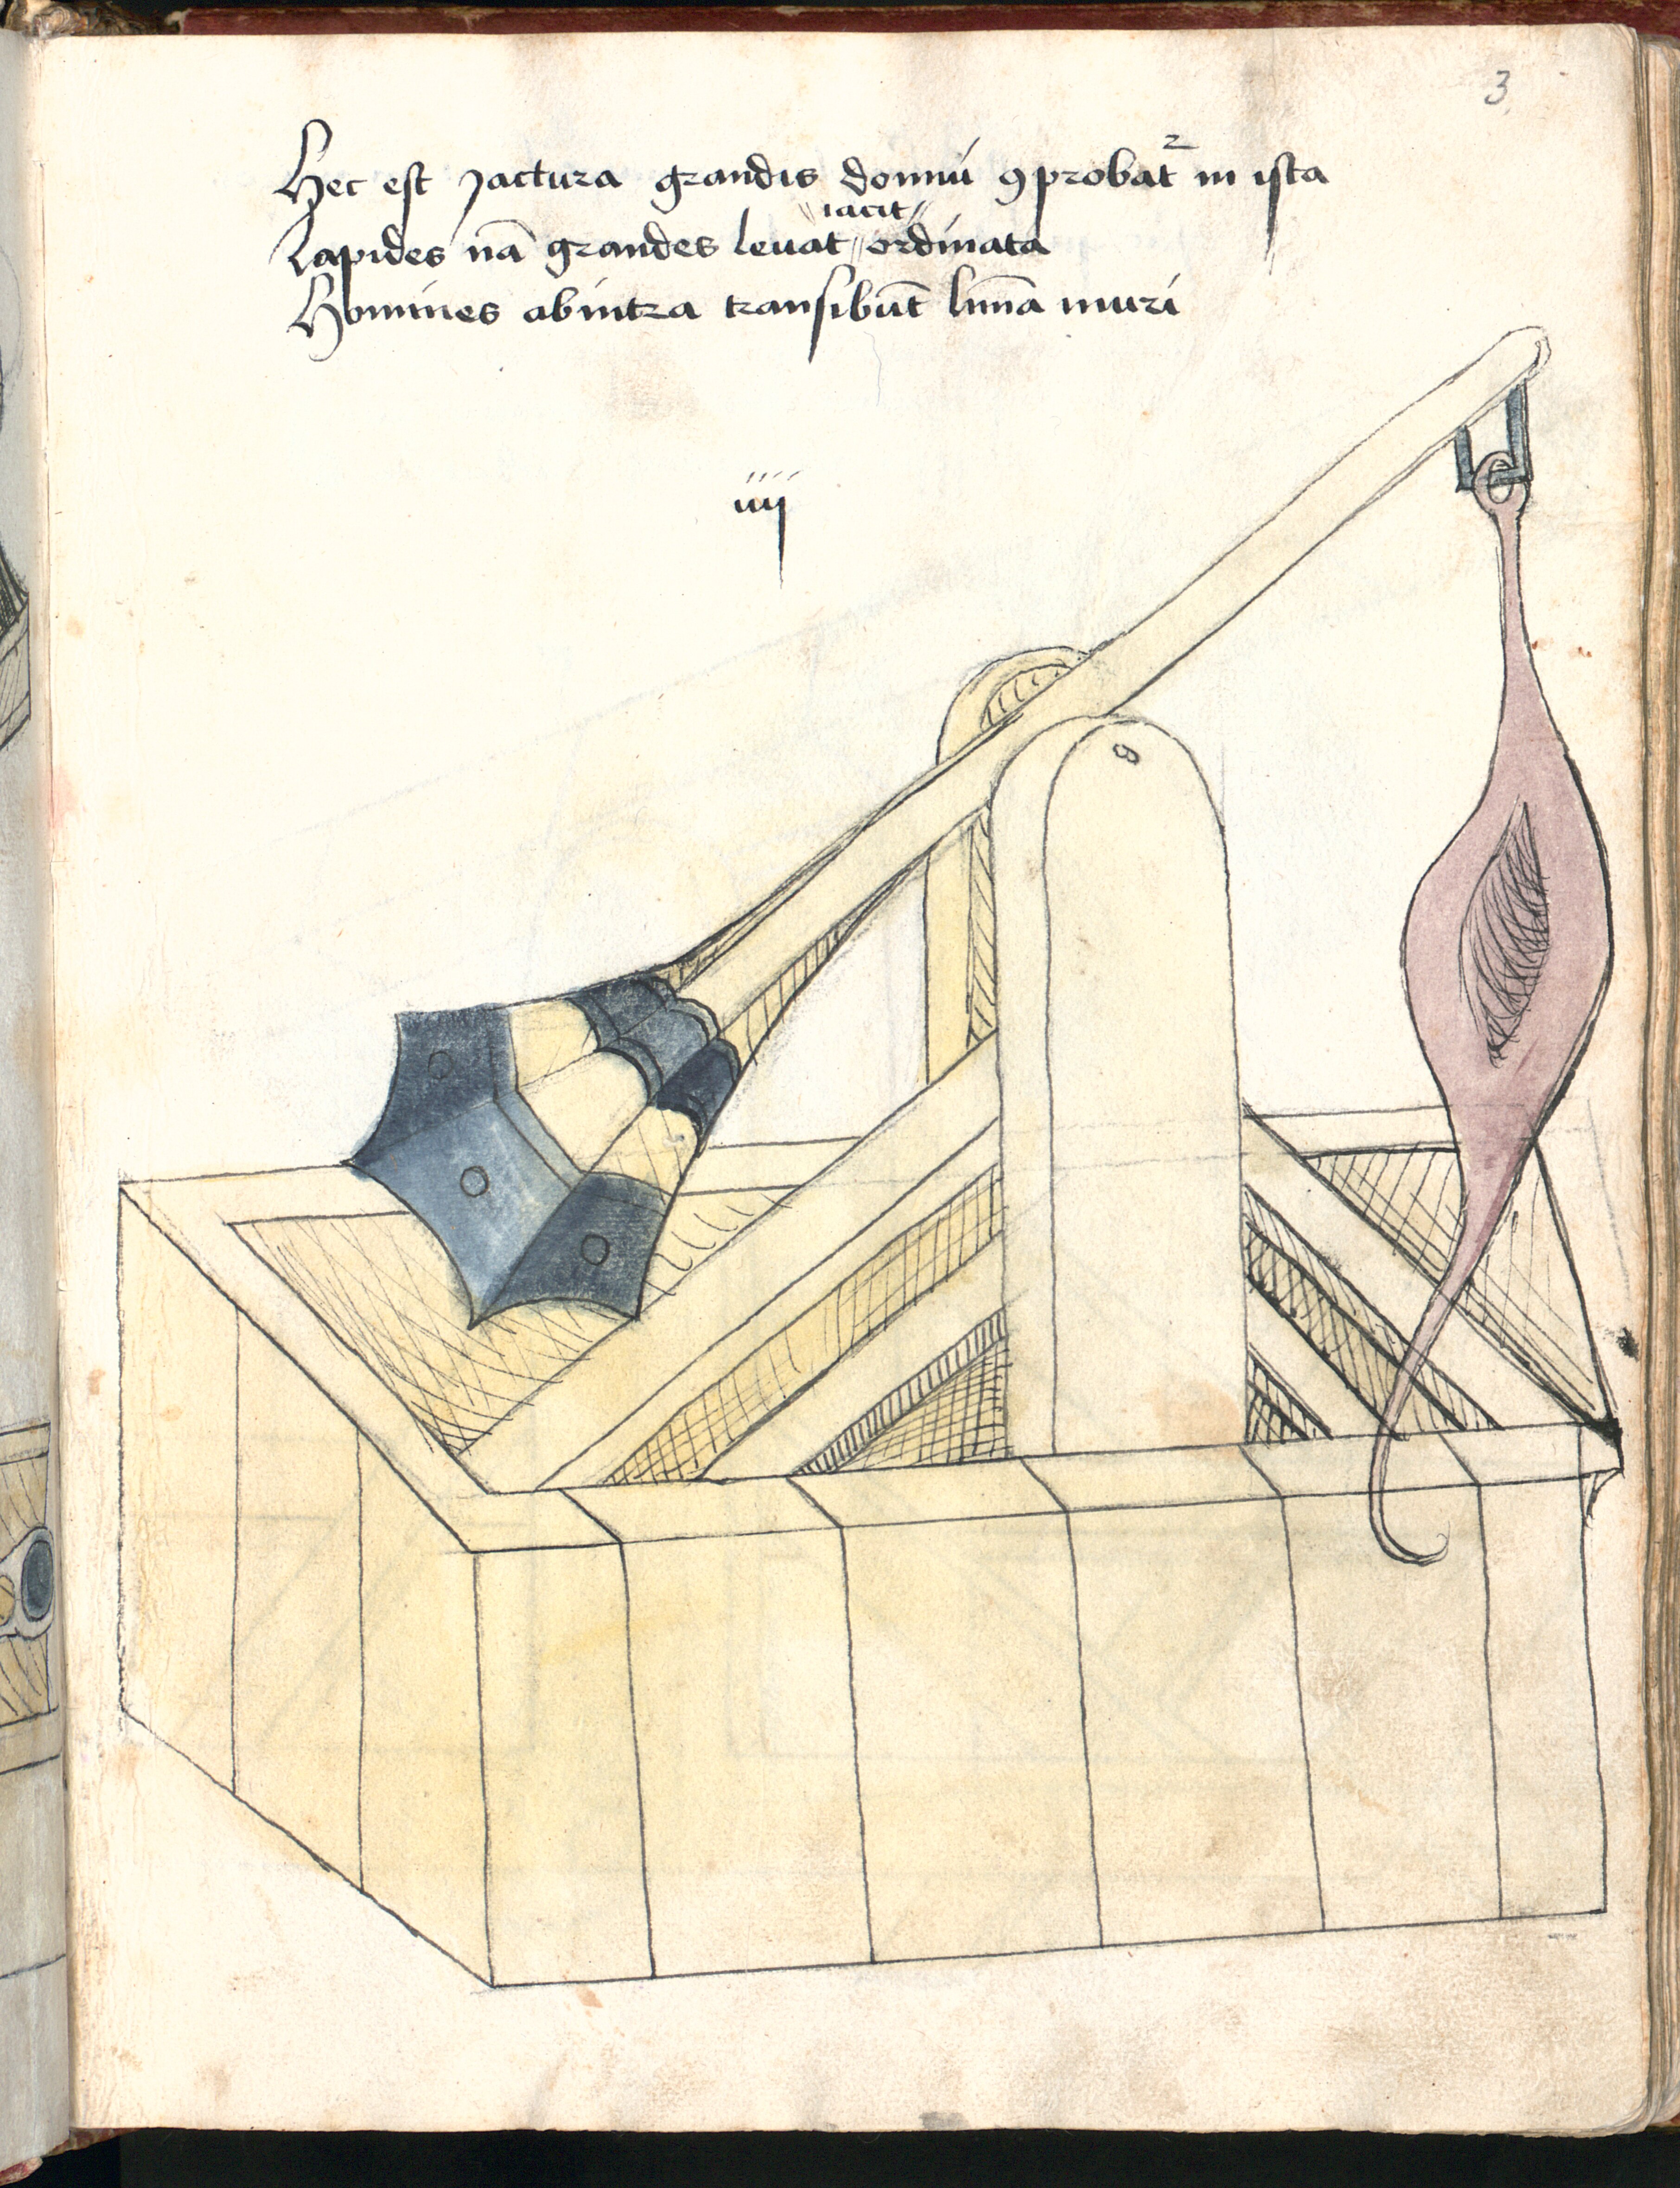 3
Hec est Jactura grandis domiũ ꝯprobat᷑ in ista
"iacit"
Lapides nā grandes levat "ordinata
Homines abintra transibūt limīa muri
iiij